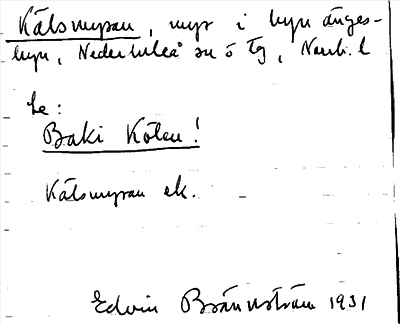 Kälsmyran, myr i byn Ängesbyn, Nederluleå sn o tg, Nordb. l
Se:
Baki Kölen!
Kälsmyran ek.
Edvin Brännström 1931